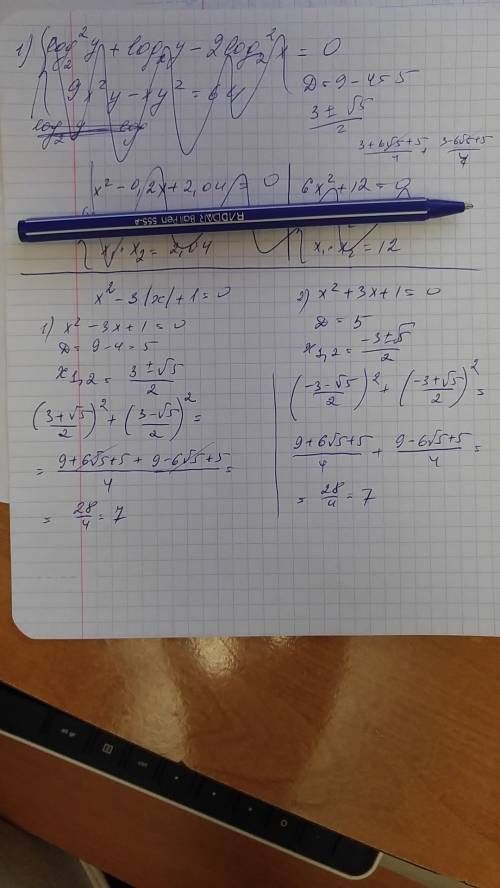 1) { log₂²y + log₂y − 2log₂²x = 0
9x²y − xy² = 64
D = 9 − 4 = 5
3 ± √5 / 2
3 + 6√5 + 5 / 4 + 3 − 6√5 + 5 / 4
x² − 0,2x + 2,04 = 0
6x² + 12 = 0
RADAR Ball Pen 555-A
x₁ · x₂ = 2,04
x₁ · x₂ = 12
x² − 3|x| + 1 = 0
1) x² − 3x + 1 = 0
D = 9 − 4 = 5
x₁,₂ = 3 ± √5 / 2
(3 + √5 / 2)² + (3 − √5 / 2)² =
= 9 + 6√5 + 5 + 9 − 6√5 + 5 / 4 =
= 28/4 = 7
2) x² + 3x + 1 = 0
D = 5
x₁,₂ = −3 ± √5 / 2
(−3 − √5 / 2)² + (−3 + √5 / 2)² =
9 + 6√5 + 5 / 4 + 9 − 6√5 + 5 / 4 =
= 28/4 = 7